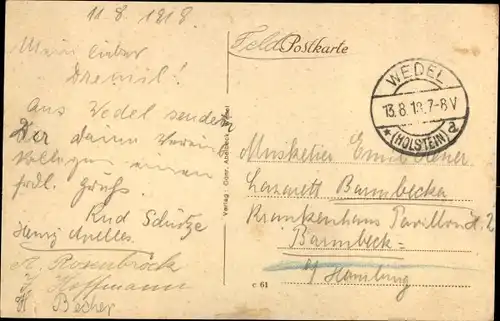 11.8.1918
Mein lieber
Dremil!
Aus Wedel senden
Dir deine Vereins
Kollegen einen
frdl. Gruß.
Rud Schütze
Henry
A. Rosenbrock
Hoffmann
H. Becker
Feld Postkarte
WEDEL
13.8.18.7-8V
* (HOLSTEIN) a
Musketier Emil
Lazarett Barmbecker
Krankenhaus Pavillon
Barmbeck
b/ Hamburg
Verlag:
c 61